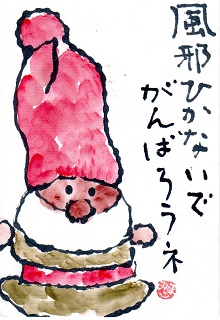 風邪ひかないで
がんばろうネ